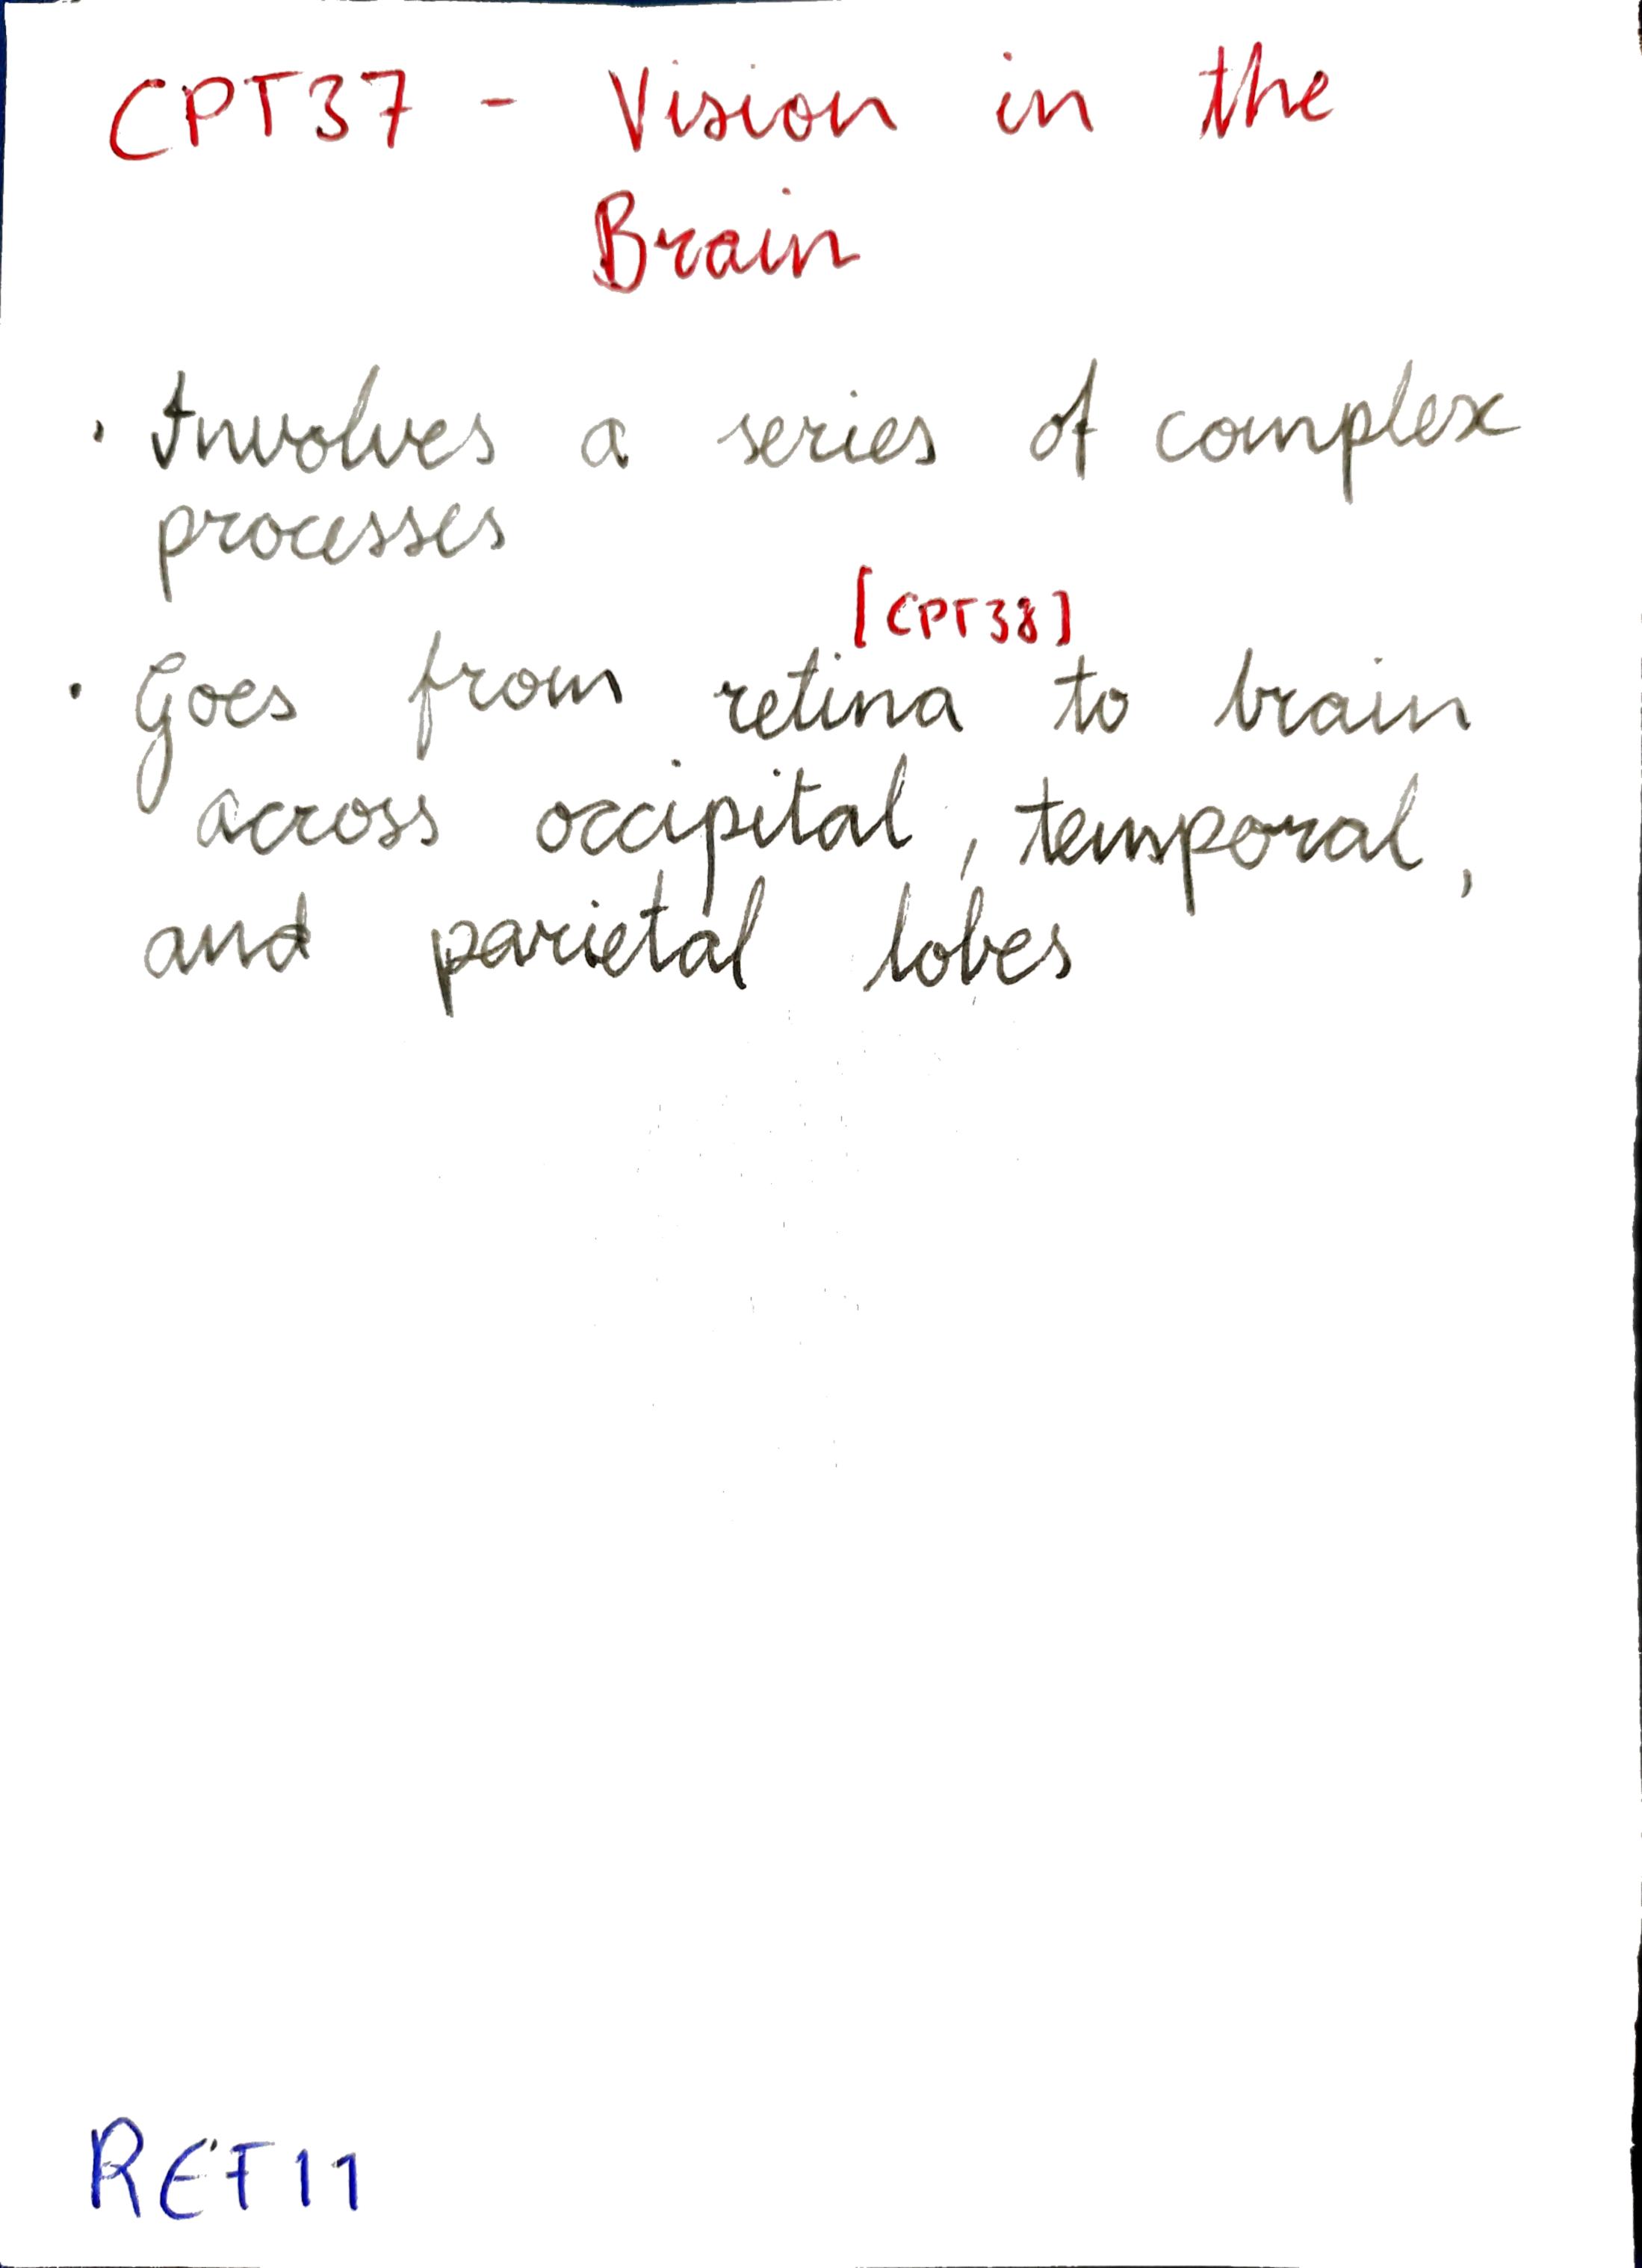 CPT37 - Vision in the
Brain
· Involves a series of complex
processes
[CPT38]
· Goes from retina to brain
across occipital, temporal,
and parietal lobes
REF11